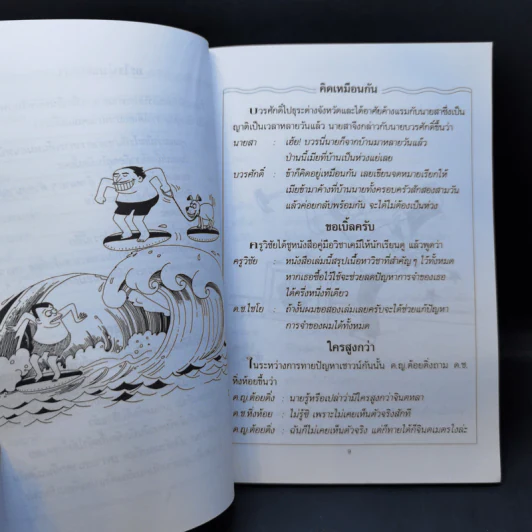 คิดเหมือนกัน
บวรศักดิ์ไปธุระต่างจังหวัดและได้อาศัยค้างแรมกับนายสาซึ่งเป็น
ญาติเป็นเวลาหลายวันแล้ว นายสาจึงกล่าวกับนายบวรศักดิ์ขึ้นว่า
นายสา : เฮ้ย! บวรนี่นายก็จากบ้านมาหลายวันแล้ว
ป่านนี้เมียที่บ้านเป็นห่วงแย่เลย
บวรศักดิ์ : ข้าก็คิดอยู่เหมือนกัน เลยเขียนจดหมายเรียกให้
เมียข้ามาค้างที่บ้านนายทั้งครอบครัวสักสองสามวัน
แล้วค่อยกลับพร้อมกัน จะได้ไม่ต้องเป็นห่วง
ขอเบิ้ลครับ
ครูวิชัยได้ชูหนังสือคู่มือวิชาเคมีให้นักเรียนดู แล้วพูดว่า
ครูวิชัย : หนังสือเล่มนี้สรุปเนื้อหาวิชาที่สำคัญๆ ไว้ทั้งหมด
หากเธอซื้อไว้ใช้จะช่วยลดปัญหาการจำของเธอ
ได้ครึ่งหนึ่งทีเดียว
ด.ช.ไชโย : ถ้างั้นผมขอสองเล่มเลยครับจะได้ช่วยแก้ปัญหา
การจำของผมได้ทั้งหมด
ใครสูงกว่า
ในระหว่างการทายปัญหาเชาวน์กันนั้น ด.ญ.ต้อยติ่งถาม ด.ช.
หิ่งห้อยขึ้นว่า
ด.ญ.ต้อยติ่ง : นายรู้หรือเปล่าว่ามีใครสูงกว่าจินตหลา
ด.ช.หิ่งห้อย : ไม่รู้ซิ เพราะไม่เคยเห็นตัวจริงสักที
ด.ญ.ต้อยติ่ง : ฉันก็ไม่เคยเห็นตัวจริง แต่ก็ทายได้ก็จินตเมตรไงล่ะ